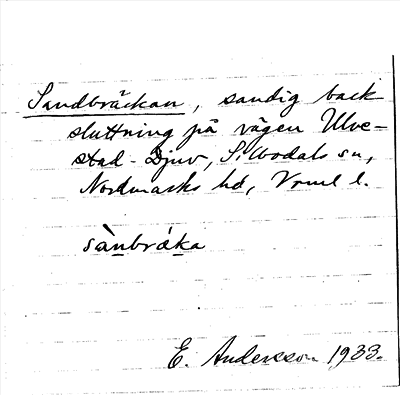 Sandbräckan, sandig back
sluttning på vägen Ulve-
stad - Djuv, S. Bodals sn,
Nordmarks hd, Vrml l.
sànbráka
E. Andersson 1933.